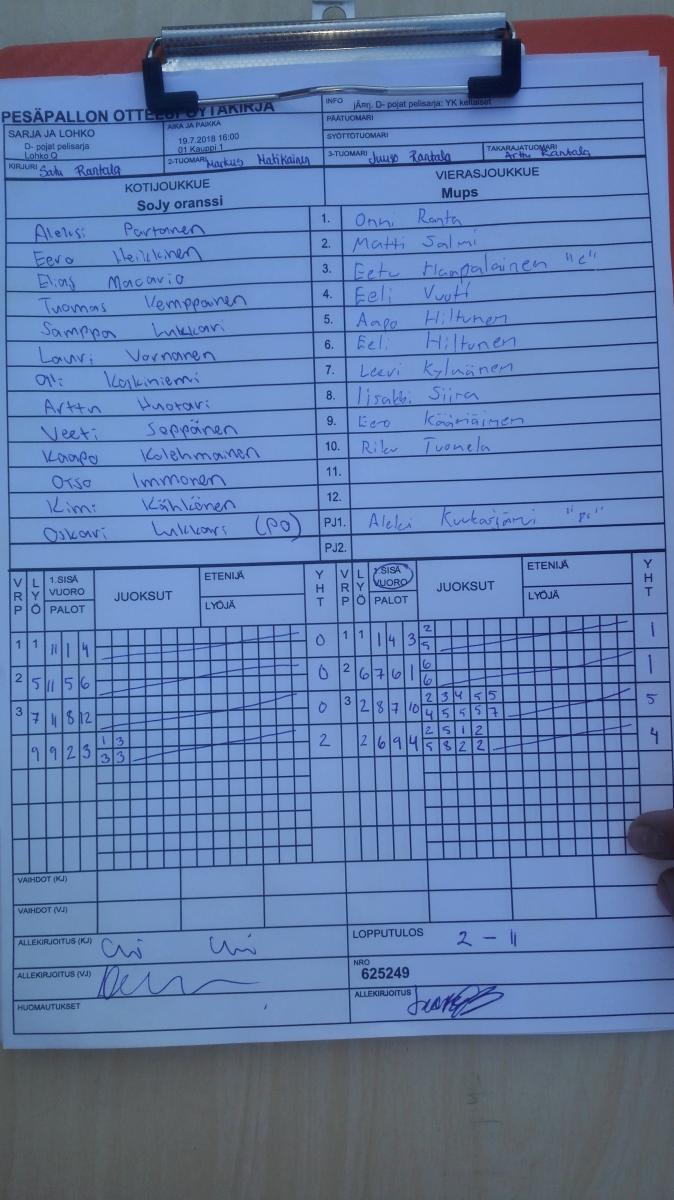 PESÄPALLON OTTELUPÖYTÄKIRJA
SARJA JA LOHKO
D- pojat pelisarja
Lohko Q
AIKA JA PAIKKA
19.7.2018 16:00
01 Kauppi 1
INFO järj. D- pojat pelisarja: YK keltaiset
PÄÄTUOMARI
SYÖTTÖTUOMARI
KIRJURI Satu Rantala
2-TUOMARI Markus Matikainen
3-TUOMARI Juuso Rantala
TAKARAJATUOMARI Arttu Rantala
KOTIJOUKKUE
SoJy oranssi
VIERASJOUKKUE
Mups
Aleksi Partanen 1. Onni Ranta
Eero Heikkinen 2. Matti Salmi
Elias Macario 3. Eetu Haapalainen "c"
Tuomas Kemppainen 4. Eeli Vuoti
Samppa Lukkari 5. Aapo Hiltunen
Lauri Varnanen 6. Eeli Hiltunen
Oli Koskiniemi 7. Leevi Kylmänen
Arttu Huotari 8. Iisakki Siira
Veeti Seppänen 9. Eero Kääriäinen
Kaapo Kolehmainen 10. Riku Tuomela
Otso Immonen 11.
Kimi Kähkönen 12.
Oskari Lukkari (PO) PJ1. Aleksi
PJ2.
VRP LYÖ 1.SISÄ VUORO PALOT JUOKSUT ETENIJÄ LYÖJÄ YHT VRP LYÖ 1.SISÄ VUORO PALOT JUOKSUT ETENIJÄ LYÖJÄ YHT
1 1 11 1 4 0 1 1 1 4 3 2 5 1
2 5 11 5 6 0 2 6 7 6 1 6 6 1
3 7 11 8 12 0 3 2 8 7 10 2 3 4 5 5 4 5 5 5 7 5
9 9 2 3 1 3 3 3 2 2 6 9 4 2 5 1 2 5 8 2 2 4
VAIHDOT (KJ)
VAIHDOT (VJ)
ALLEKIRJOITUS (KJ)
LOPPUTULOS 2 - 11
ALLEKIRJOITUS (VJ)
NRO
625249
HUOMAUTUKSET
ALLEKIRJOITUS